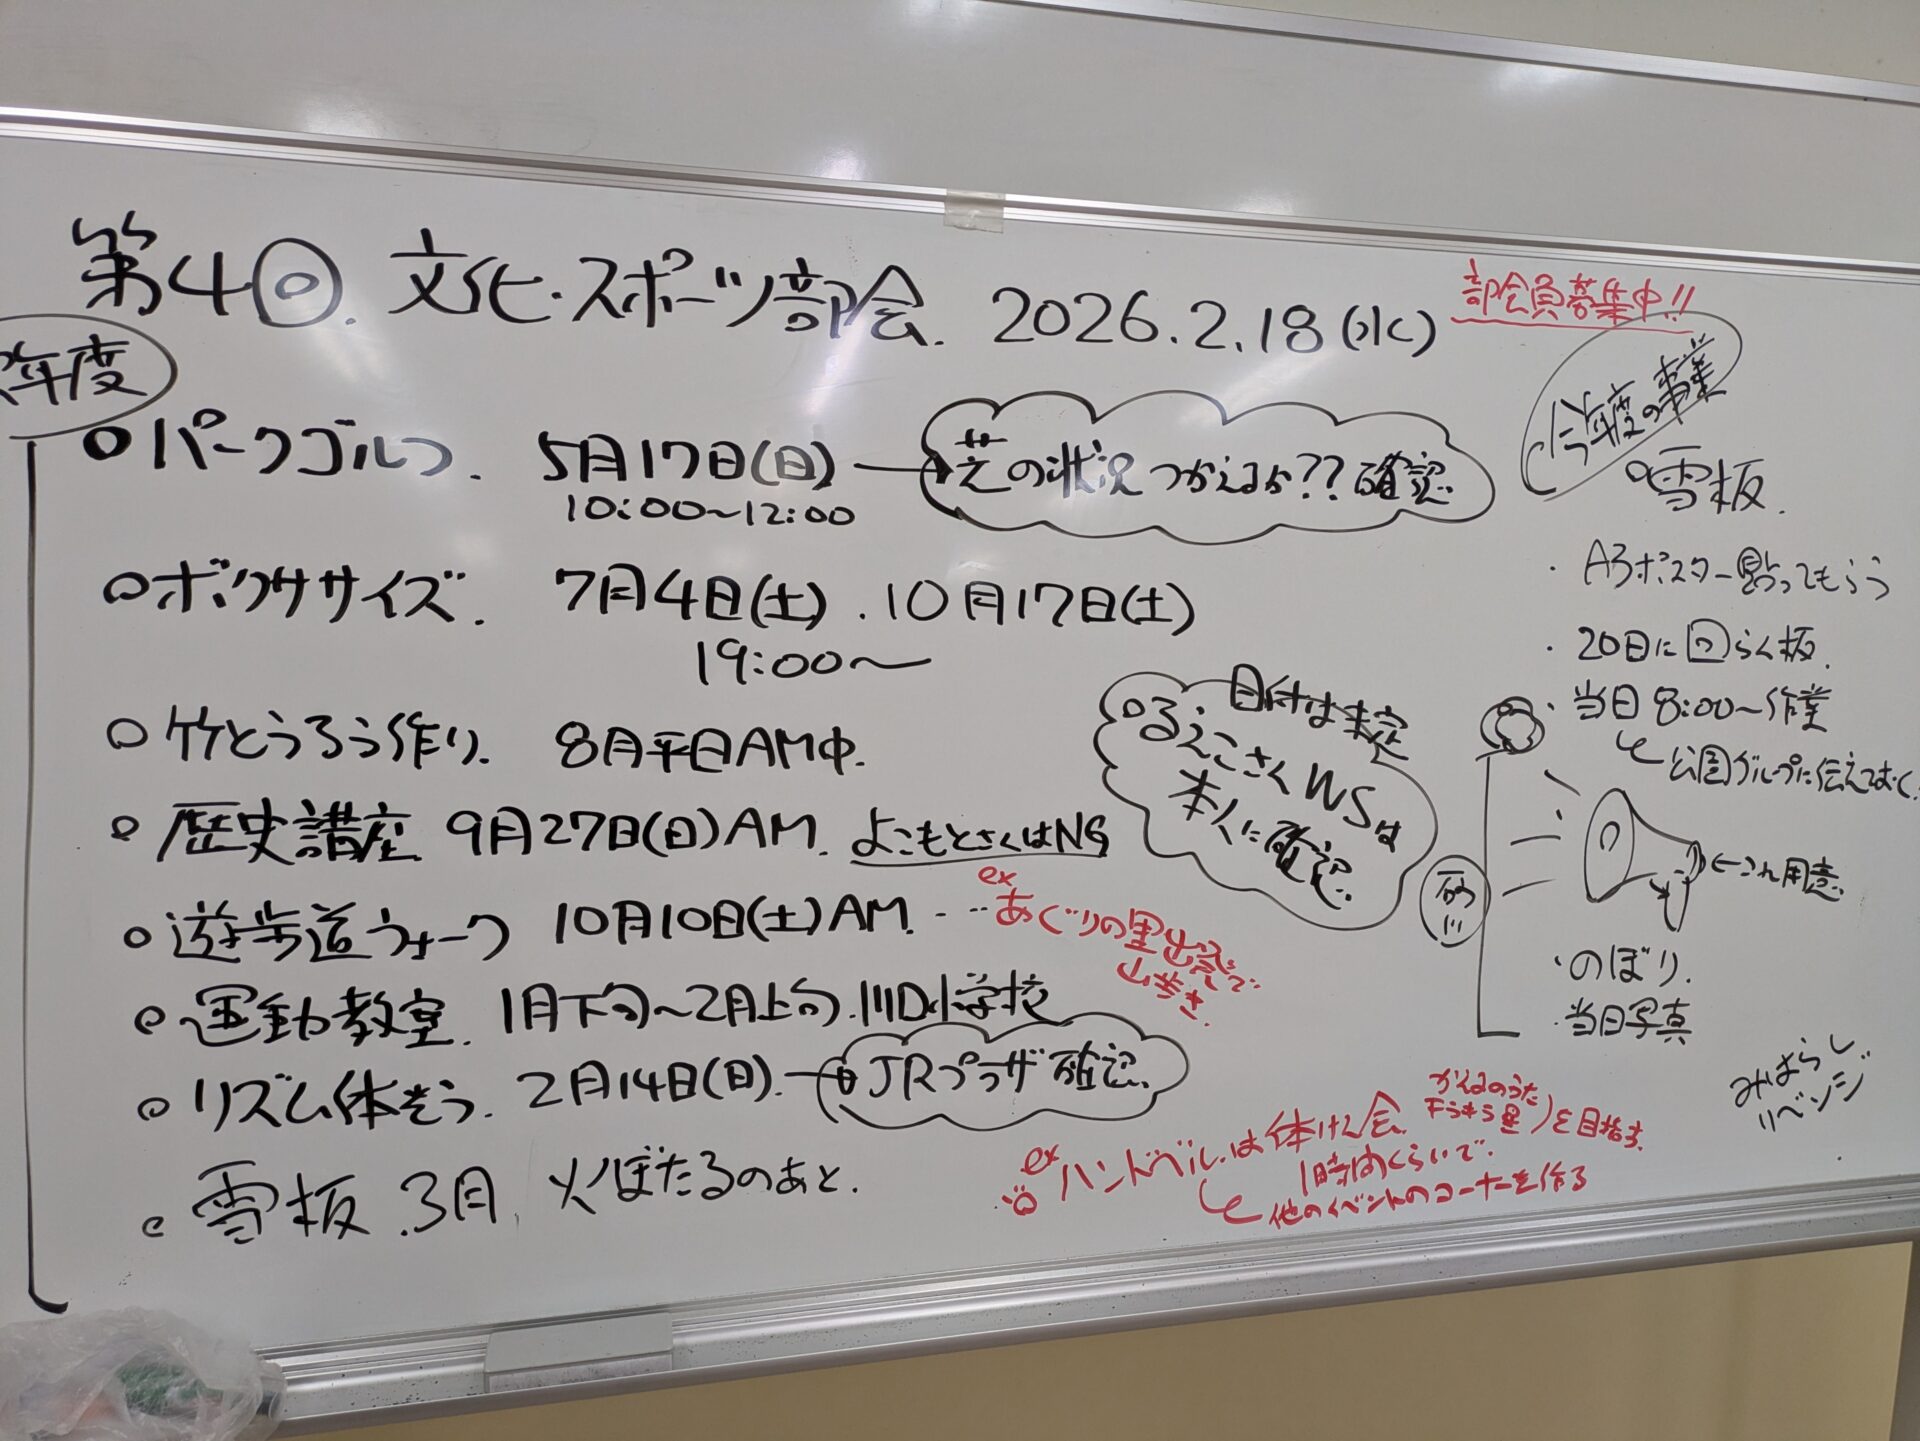 第4回. 文化・スポーツ部会. 2026.2.18(水)
部会員募集中!!
年度
○パークゴルフ. 5月17日(日)
10:00~12:00
芝の状況つかえるか??確認
○ボクササイズ. 7月4日(土). 10月17日(土)
19:00~
○竹とうろう作り. 8月平日AM中.
○歴史講座 9月27日(日)AM. よこもとさくはNG
○遊歩道ウォーク 10月10日(土)AM.
ex あぐりの里出発で
山歩き.
○運動教室. 1月下旬~2月上旬. 小学校
○リズム体そう. 2月14日(日).
JRプラザ確認.
○雪板. 3月. 火ぼたるのあと.
日付は未定
本人に確認.
今年度の事業
○雪板.
・A3ポスター貼ってもらう
・20日に回らん板.
・当日8:00~作業
公園グループに伝えておく.
←これ用意.
・のぼり.
・当日写真
みはらし
リベンジ
ex ハンドベルは体けん会
1時間くらいで.
他のイベントのコーナーを作る
かえるのうた
きらきら星
を目指す.